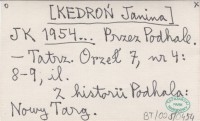 [KEDROŃ Janina]
JK 1954... Przez Podhale.
– Tatrz. Orzeł 7, nr 4:
8-9, il.
Z historii Podhala:
Nowy Targ.